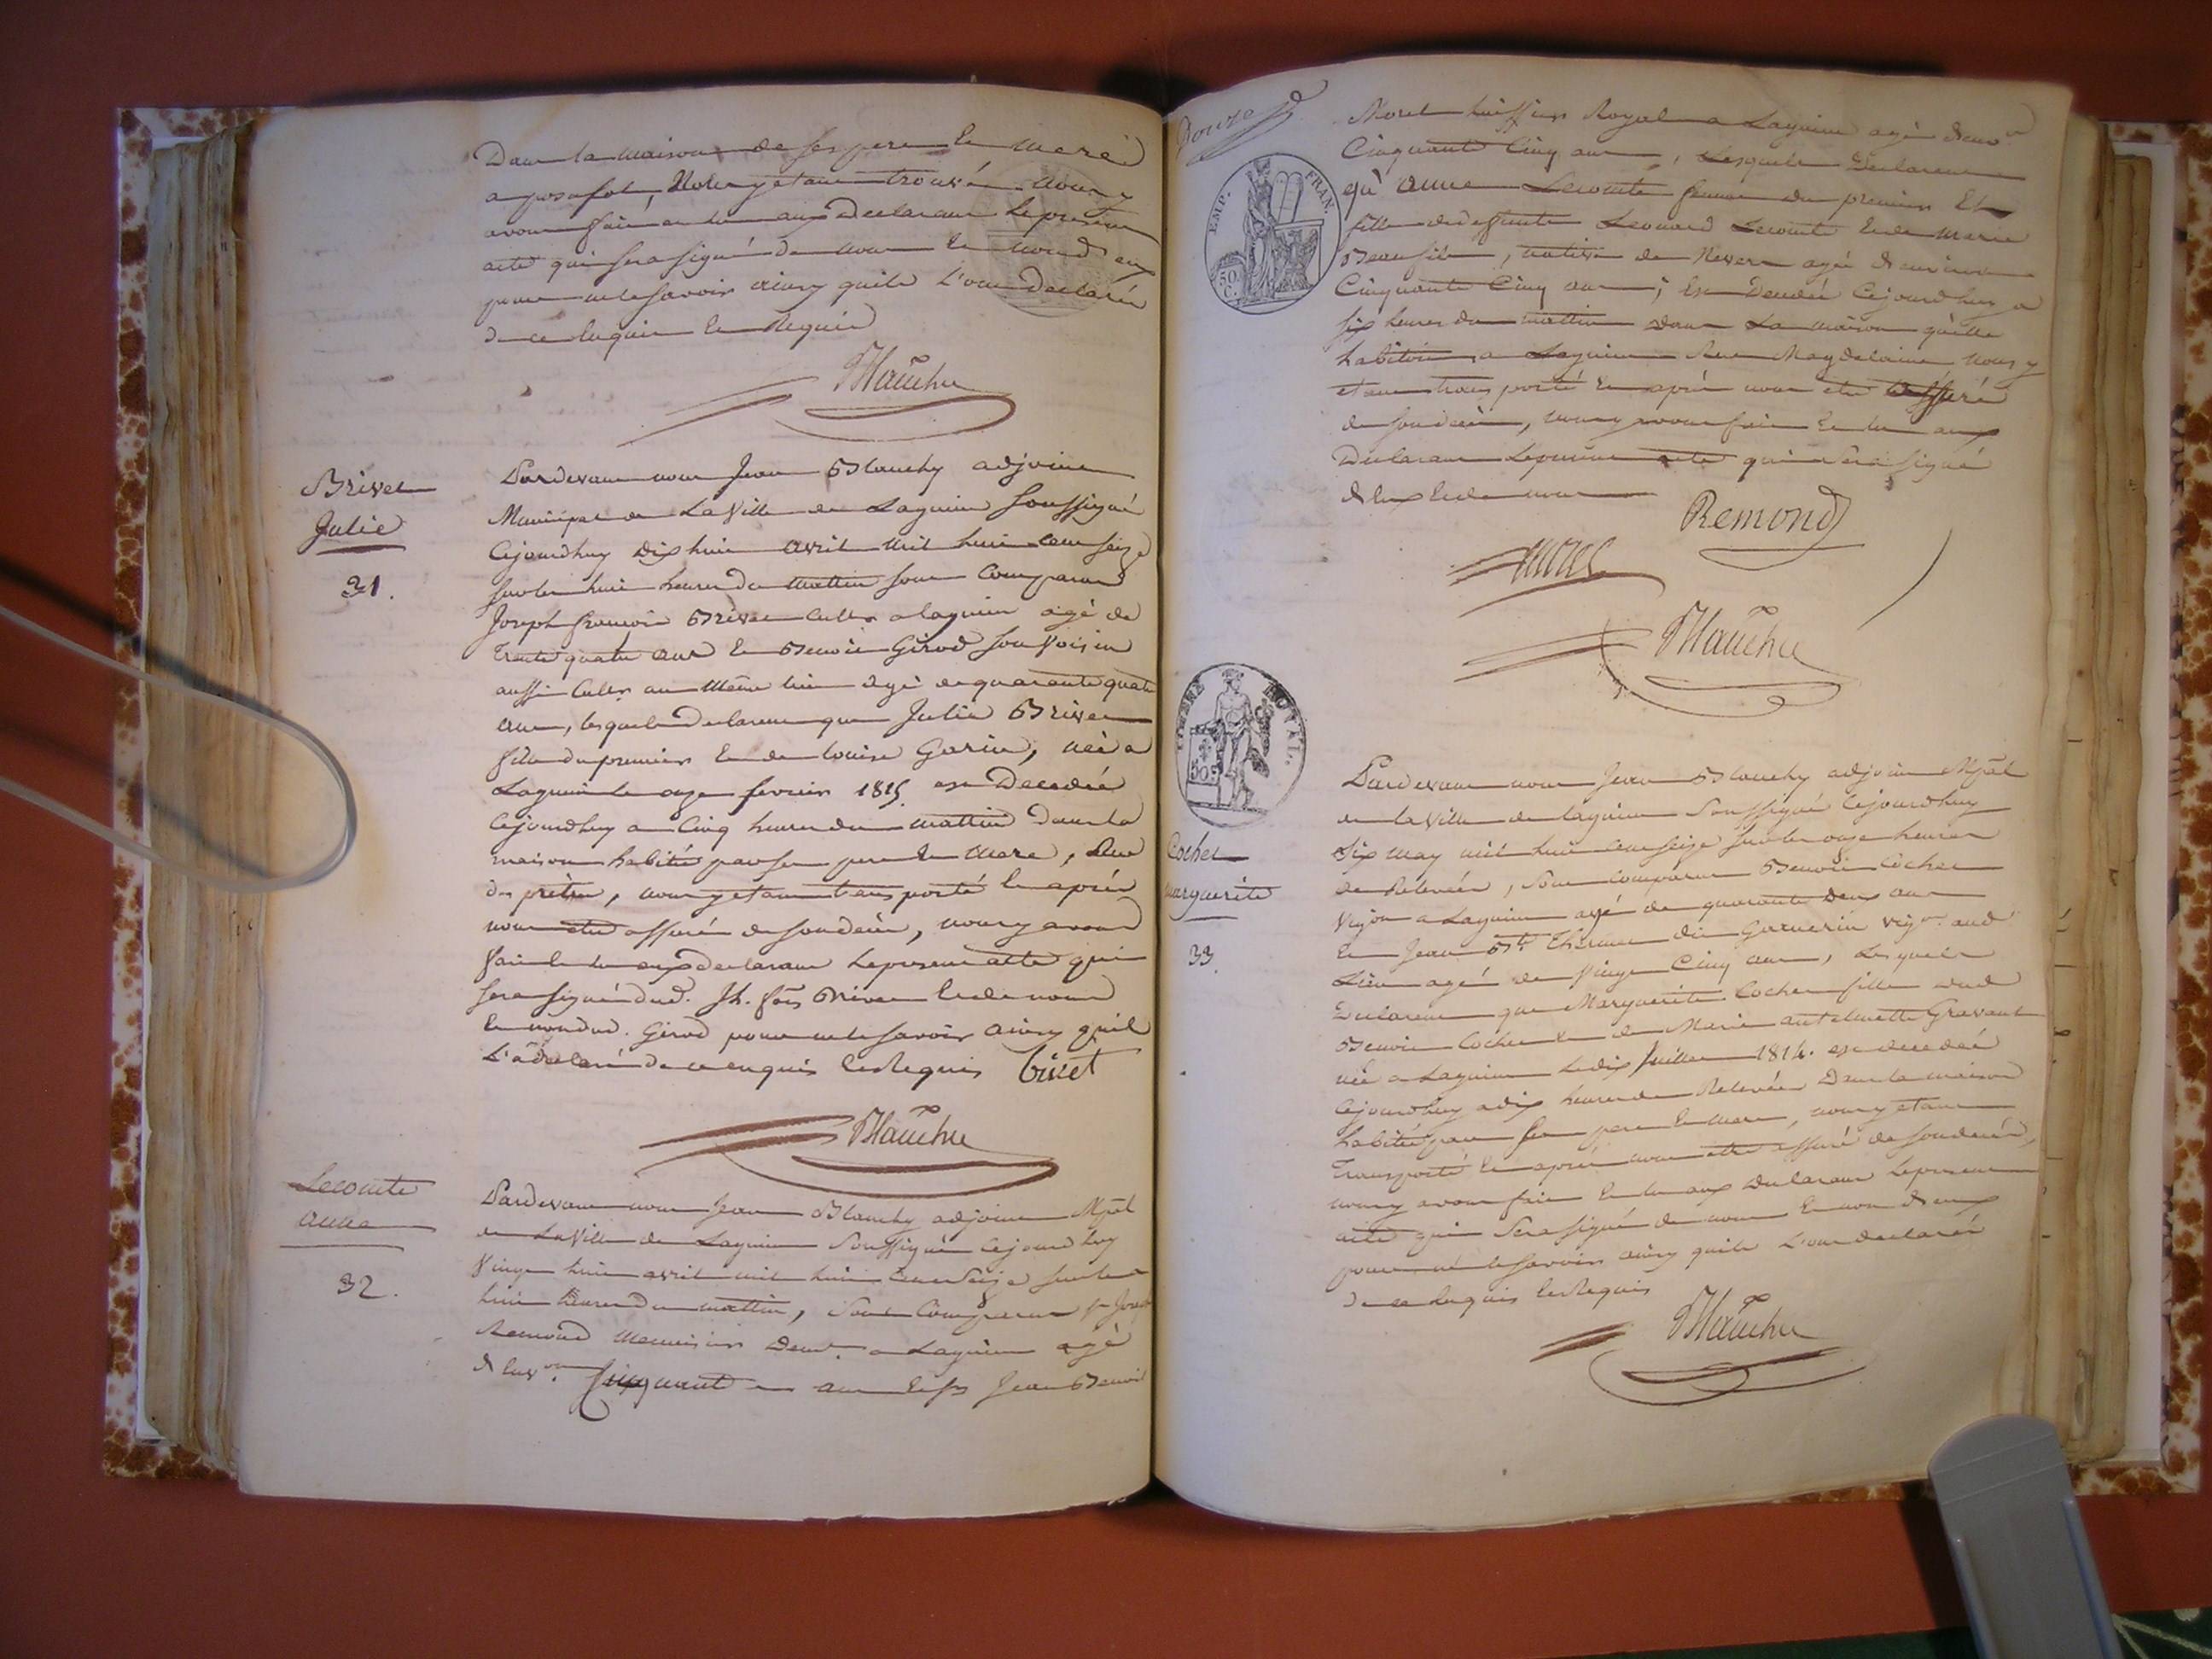 Dans la maison de ses pere et mere
a posafol, Nous y etant trouvé nous y
avons fait et lu aux Declarans le present
acte qui sera signé de nous et non d'eux
pour ne le savoir ainsy quils l'ont declaré
de ce enquis et Requis
Blanchy
Brivet
Julie
31.
Pardevant nous Jean Blanchy adjoint
Municipal de La Ville de Lagnieu Soussigné
Cejourdhuy dix huit avril mil huit cent seize
sur les huit heures du mattin sont Comparus
Joseph francois Brivet cultr a lagnieu agé de
trente quatre ans et Benoit Girod son voisin
aussi cultr au Même lieu agé de quarante quatre
ans, lesquels Declarent que Julie Brivet
fille du premier et de louise Garin, née a
Lagnieu le onze fevrier 1815. est Decedée
Cejourdhuy a Cinq heures du mattin dans la
maison habitée par ses pere et mere, Rue
des prêtres, nous y etant transporté et après
nous etre assuré de son decès, nous y avons
fait et lu aux declarans le present acte qui
sera signé dud. Jh. fois Brivet et de nous
et non dud. Girod pour ne le savoir ainsy quil
l'a declaré de ce enquis et Requis brivet
Blanchy
Lecomte
anne
32.
Pardevant nous Jean Blanchy adjoint Mpal
de La Ville de Lagnieu Soussigné Cejourdhuy
Vingt huit avril mil huit Cent Seize sur les
huit heures du mattin, Sont Comparus sr Joseph
Remond Menuisier demt. a Lagnieu agé
d'envon. Cinquante ans et sr Jean Benoit
Douze
EMP. FRAN.
50 C.
Morel huissier Royal a Lagnieu agé d'envon
Cinquante Cinq ans, Lesquels Declarent
qu'anne Lecomte femme du premier Et
fille de deffunts Leonard Lecomte et de Marie
Beaufils, native de Nevers agée d'environ
Cinquante Cinq ans; est Decedée Cejourdhuy a
six heures du mattin dans La maison qu'elle
habitoit a Lagnieu Rue Magdelaine Nous y
etant transporté et après nous etre assuré
de son decès, nous y avons fait et lu aux
Declarans Le present acte qui Sera signé
d'eux et de nous
Remond
morel
Blanchy
TIMBRE ROYAL.
50
Cochet
Marguerite
33.
Pardevant nous Jean Blanchy adjoint Mpal
de la Ville de lagnieu Soussigné Cejourdhuy
Six may mil huit cent seize sur les onze heures
de Relevée, Sont comparus Benoit Cochet
Vigon a Lagnieu agé de quarante deux ans
et Jean Bte Thenne dit Garnerin vigon aud
Lieu agé de Vingt Cinq ans, Lesquels
Declarent que Marguerite Cochet fille dud
Benoit Cochet et de Marie antelmette Gravant
née a Lagnieu Le dix Juillet 1814. est decedée
Cejourdhuy a dix heures de Relevée Dans la maison
habitée par ses pere et mere, nous y etant
Transporté et après nous etre assuré de son decès,
nous y avons fait et lu aux Declarans Le present
acte qui Sera signé de nous et non d'eux
pour ne le savoir ainsy quils L'ont declaré
de ce enquis et Requis
Blanchy